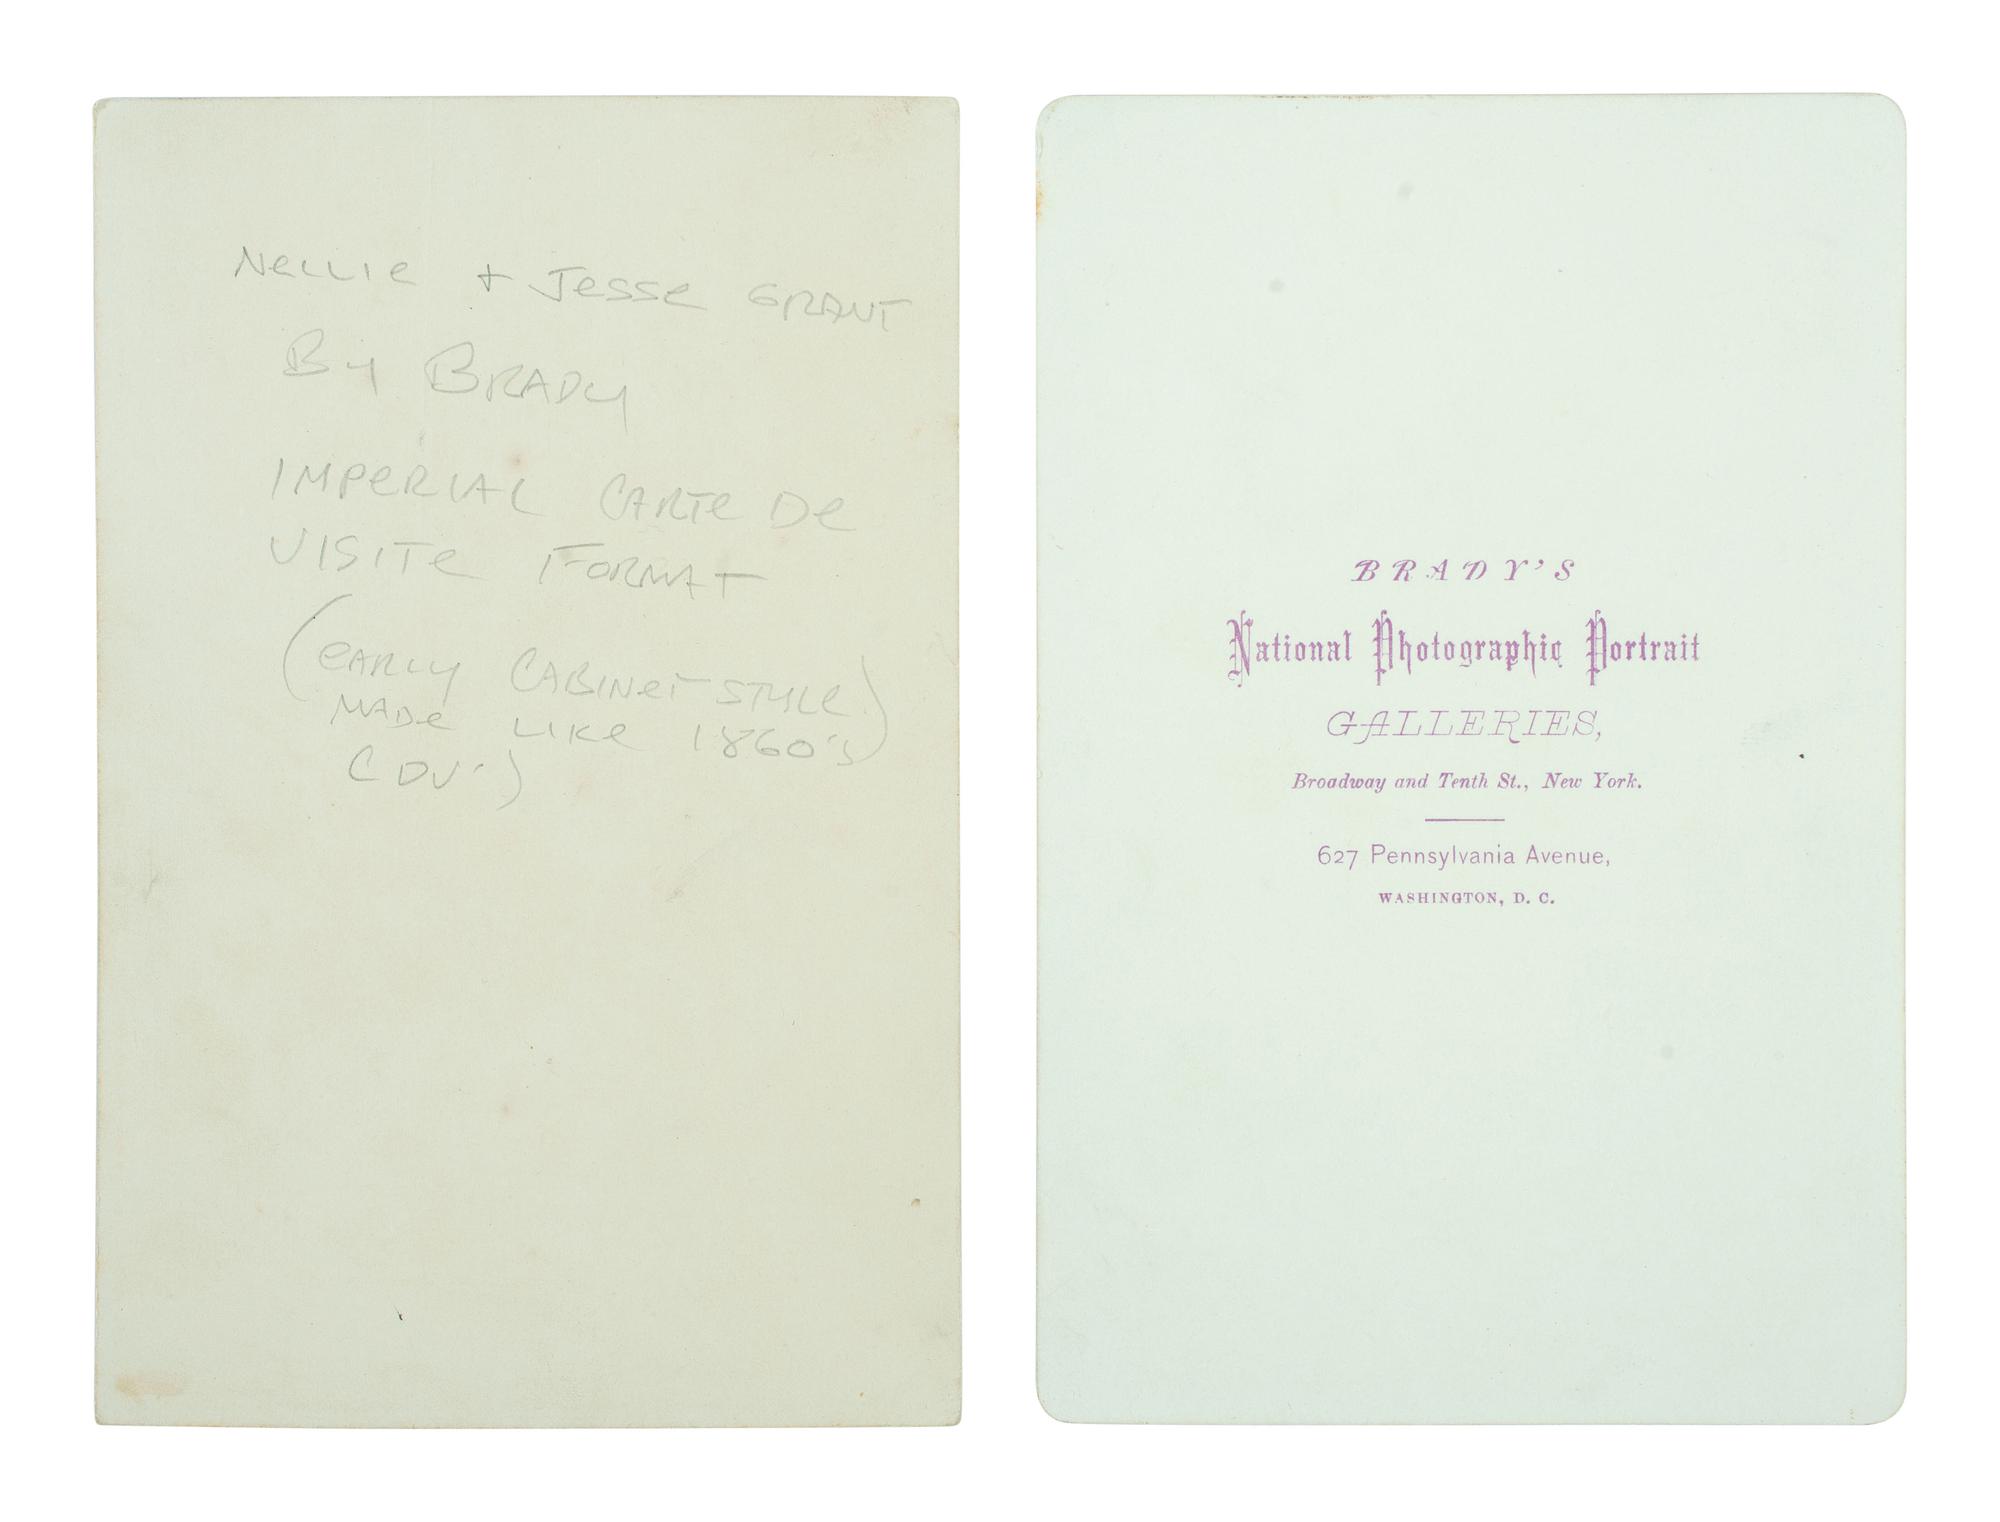 Nellie + Jesse GRANT
By BRADY
IMPERIAL CARTE De
VISITe FORMAT
(eARLY CABINeT STYLe)
MADe LIKe 1860's
CDV's)
BRADY'S
National Photographic Portrait
GALLERIES,
Broadway and Tenth St., New York.
627 Pennsylvania Avenue,
WASHINGTON, D. C.